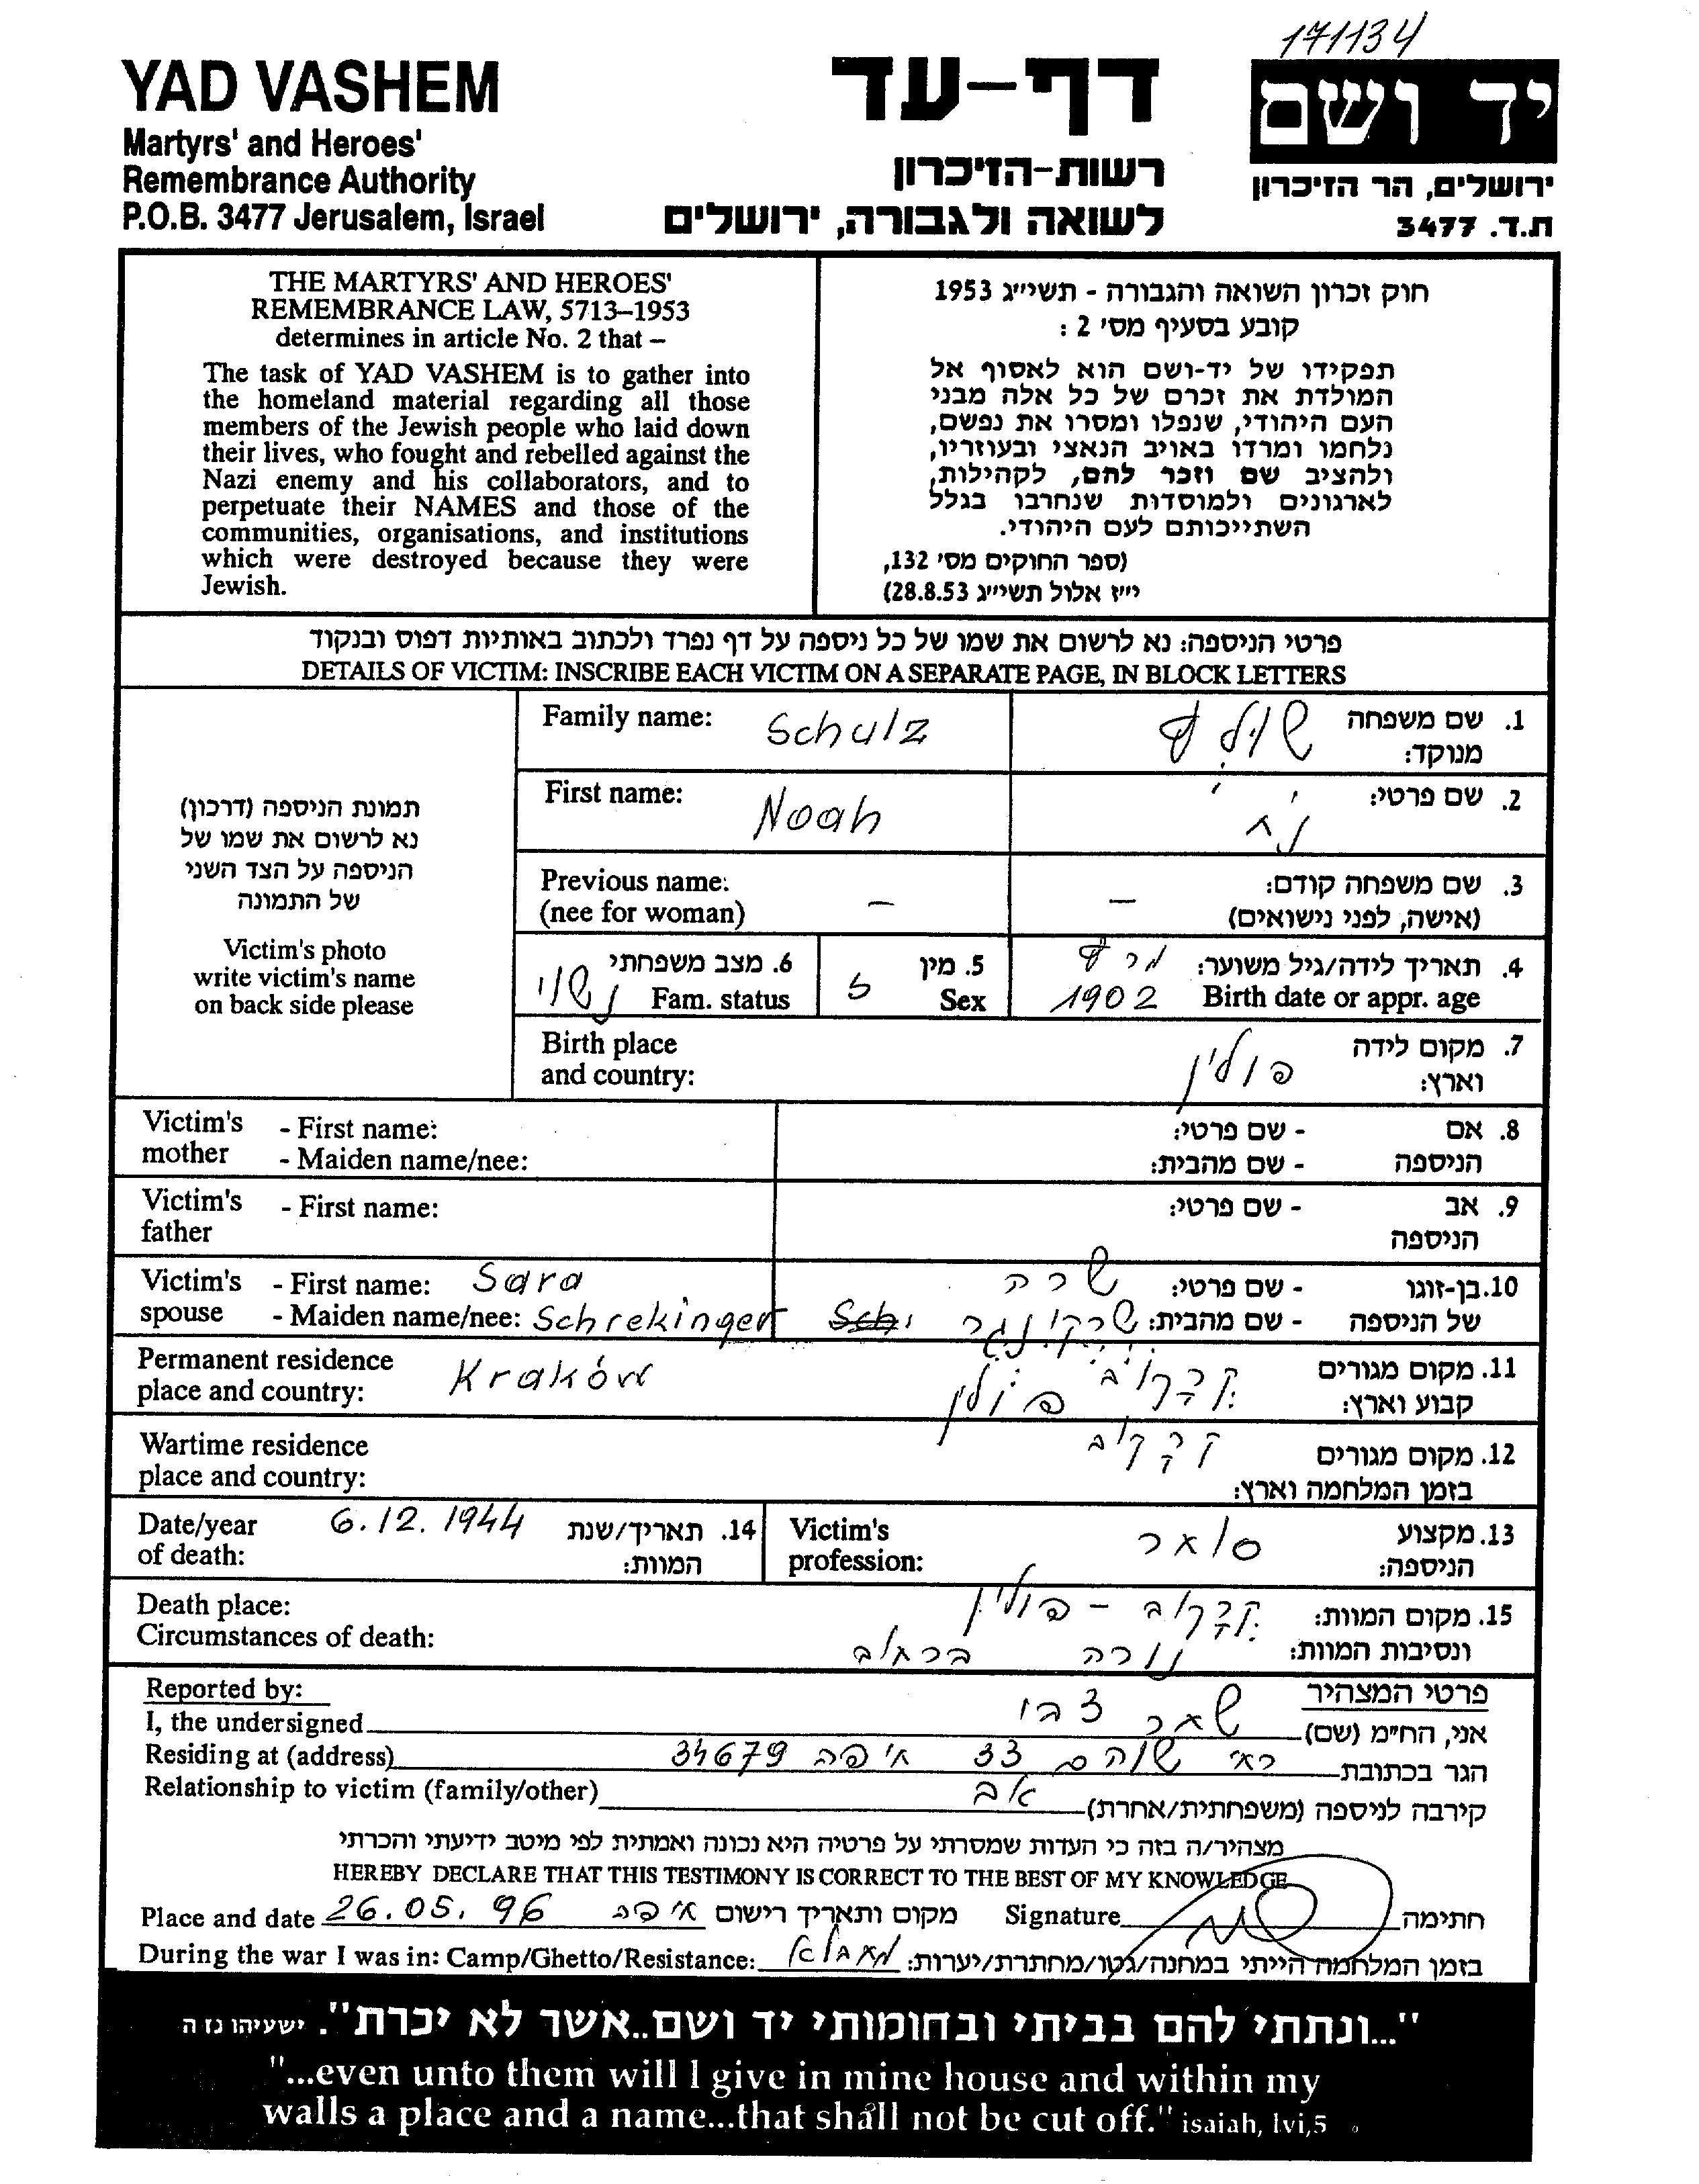 171134
YAD VASHEM
Martyrs' and Heroes'
Remembrance Authority
P.O.B. 3477 Jerusalem, Israel
דף-עד
רשות-הזיכרון
לשואה ולגבורה, ירושלים
יד ושם
ירושלים, הר הזיכרון
ת.ד. 3477
THE MARTYRS' AND HEROES'
REMEMBRANCE LAW, 5713–1953
determines in article No. 2 that –
The task of YAD VASHEM is to gather into
the homeland material regarding all those
members of the Jewish people who laid down
their lives, who fought and rebelled against the
Nazi enemy and his collaborators, and to
perpetuate their NAMES and those of the
communities, organisations, and institutions
which were destroyed because they were
Jewish.
חוק זכרון השואה והגבורה - תשי״ג 1953
קובע בסעיף מס׳ 2 :
תפקידו של יד-ושם הוא לאסוף אל
המולדת את זכרם של כל אלה מבני
העם היהודי, שנפלו ומסרו את נפשם,
נלחמו ומרדו באויב הנאצי ובעוזריו,
ולהציב שם וזכר להם, לקהילות,
לארגונים ולמוסדות שנחרבו בגלל
השתייכותם לעם היהודי.
(ספר החוקים מס׳ 132,
י״ז אלול תשי״ג 28.8.53)
פרטי הניספה: נא לרשום את שמו של כל ניספה על דף נפרד ולכתוב באותיות דפוס ובנקוד
DETAILS OF VICTIM: INSCRIBE EACH VICTIM ON A SEPARATE PAGE, IN BLOCK LETTERS
תמונת הניספה (דרכון)
נא לרשום את שמו של
הניספה על הצד השני
של התמונה
Victim's photo
write victim's name
on back side please
Family name: Schulz שולץ 1. שם משפחה
מנוקד:
First name: Noah נח 2. שם פרטי:
Previous name: – – 3. שם משפחה קודם:
(nee for woman) (אישה, לפני נישואים)
6. מצב משפחתי 5. מין מרץ 4. תאריך לידה/גיל משוער:
נשוי Fam. status ז Sex 1902 Birth date or appr. age
Birth place 7. מקום לידה
and country: פולין וארץ:
Victim's - First name: - שם פרטי: 8. אם
mother - Maiden name/nee: - שם מהבית: הניספה
Victim's - First name: - שם פרטי: 9. אב
father הניספה
Victim's - First name: Sara שרה - שם פרטי: 10. בן-זוגו
spouse - Maiden name/nee: Schrekinger Sch שרקינגר - שם מהבית: של הניספה
Permanent residence Kraków קרקוב 11. מקום מגורים
place and country: פולין קבוע וארץ:
Wartime residence קרקוב 12. מקום מגורים
place and country: בזמן המלחמה וארץ:
Date/year 6.12.1944 14. תאריך/שנת Victim's 13. מקצוע
of death: המוות: profession: סוחר הניספה:
Death place: קרקוב - פולין 15. מקום המוות:
Circumstances of death: נורה ברחוב ונסיבות המוות:
Reported by: פרטי המצהיר
I, the undersigned צבי אני, הח״מ (שם)
Residing at (address) שוהם 33 חיפה 34679 הגר בכתובת
Relationship to victim (family/other) אב קירבה לניספה (משפחתית/אחרת)
מצהיר/ה בזה כי העדות שמסרתי על פרטיה היא נכונה ואמתית לפי מיטב ידיעתי והכרתי
HEREBY DECLARE THAT THIS TESTIMONY IS CORRECT TO THE BEST OF MY KNOWLEDGE
Place and date 26.05.96 חיפה מקום ותאריך רישום Signature חתימה
During the war I was in: Camp/Ghetto/Resistance: בזמן המלחמה הייתי במחנה/גטו/מחתרת/יערות:
"...ונתתי להם בביתי ובחומותי יד ושם..אשר לא יכרת". ישעיהו נו ה
"...even unto them will I give in mine house and within my
walls a place and a name...that shall not be cut off." isaiah, lvi,5